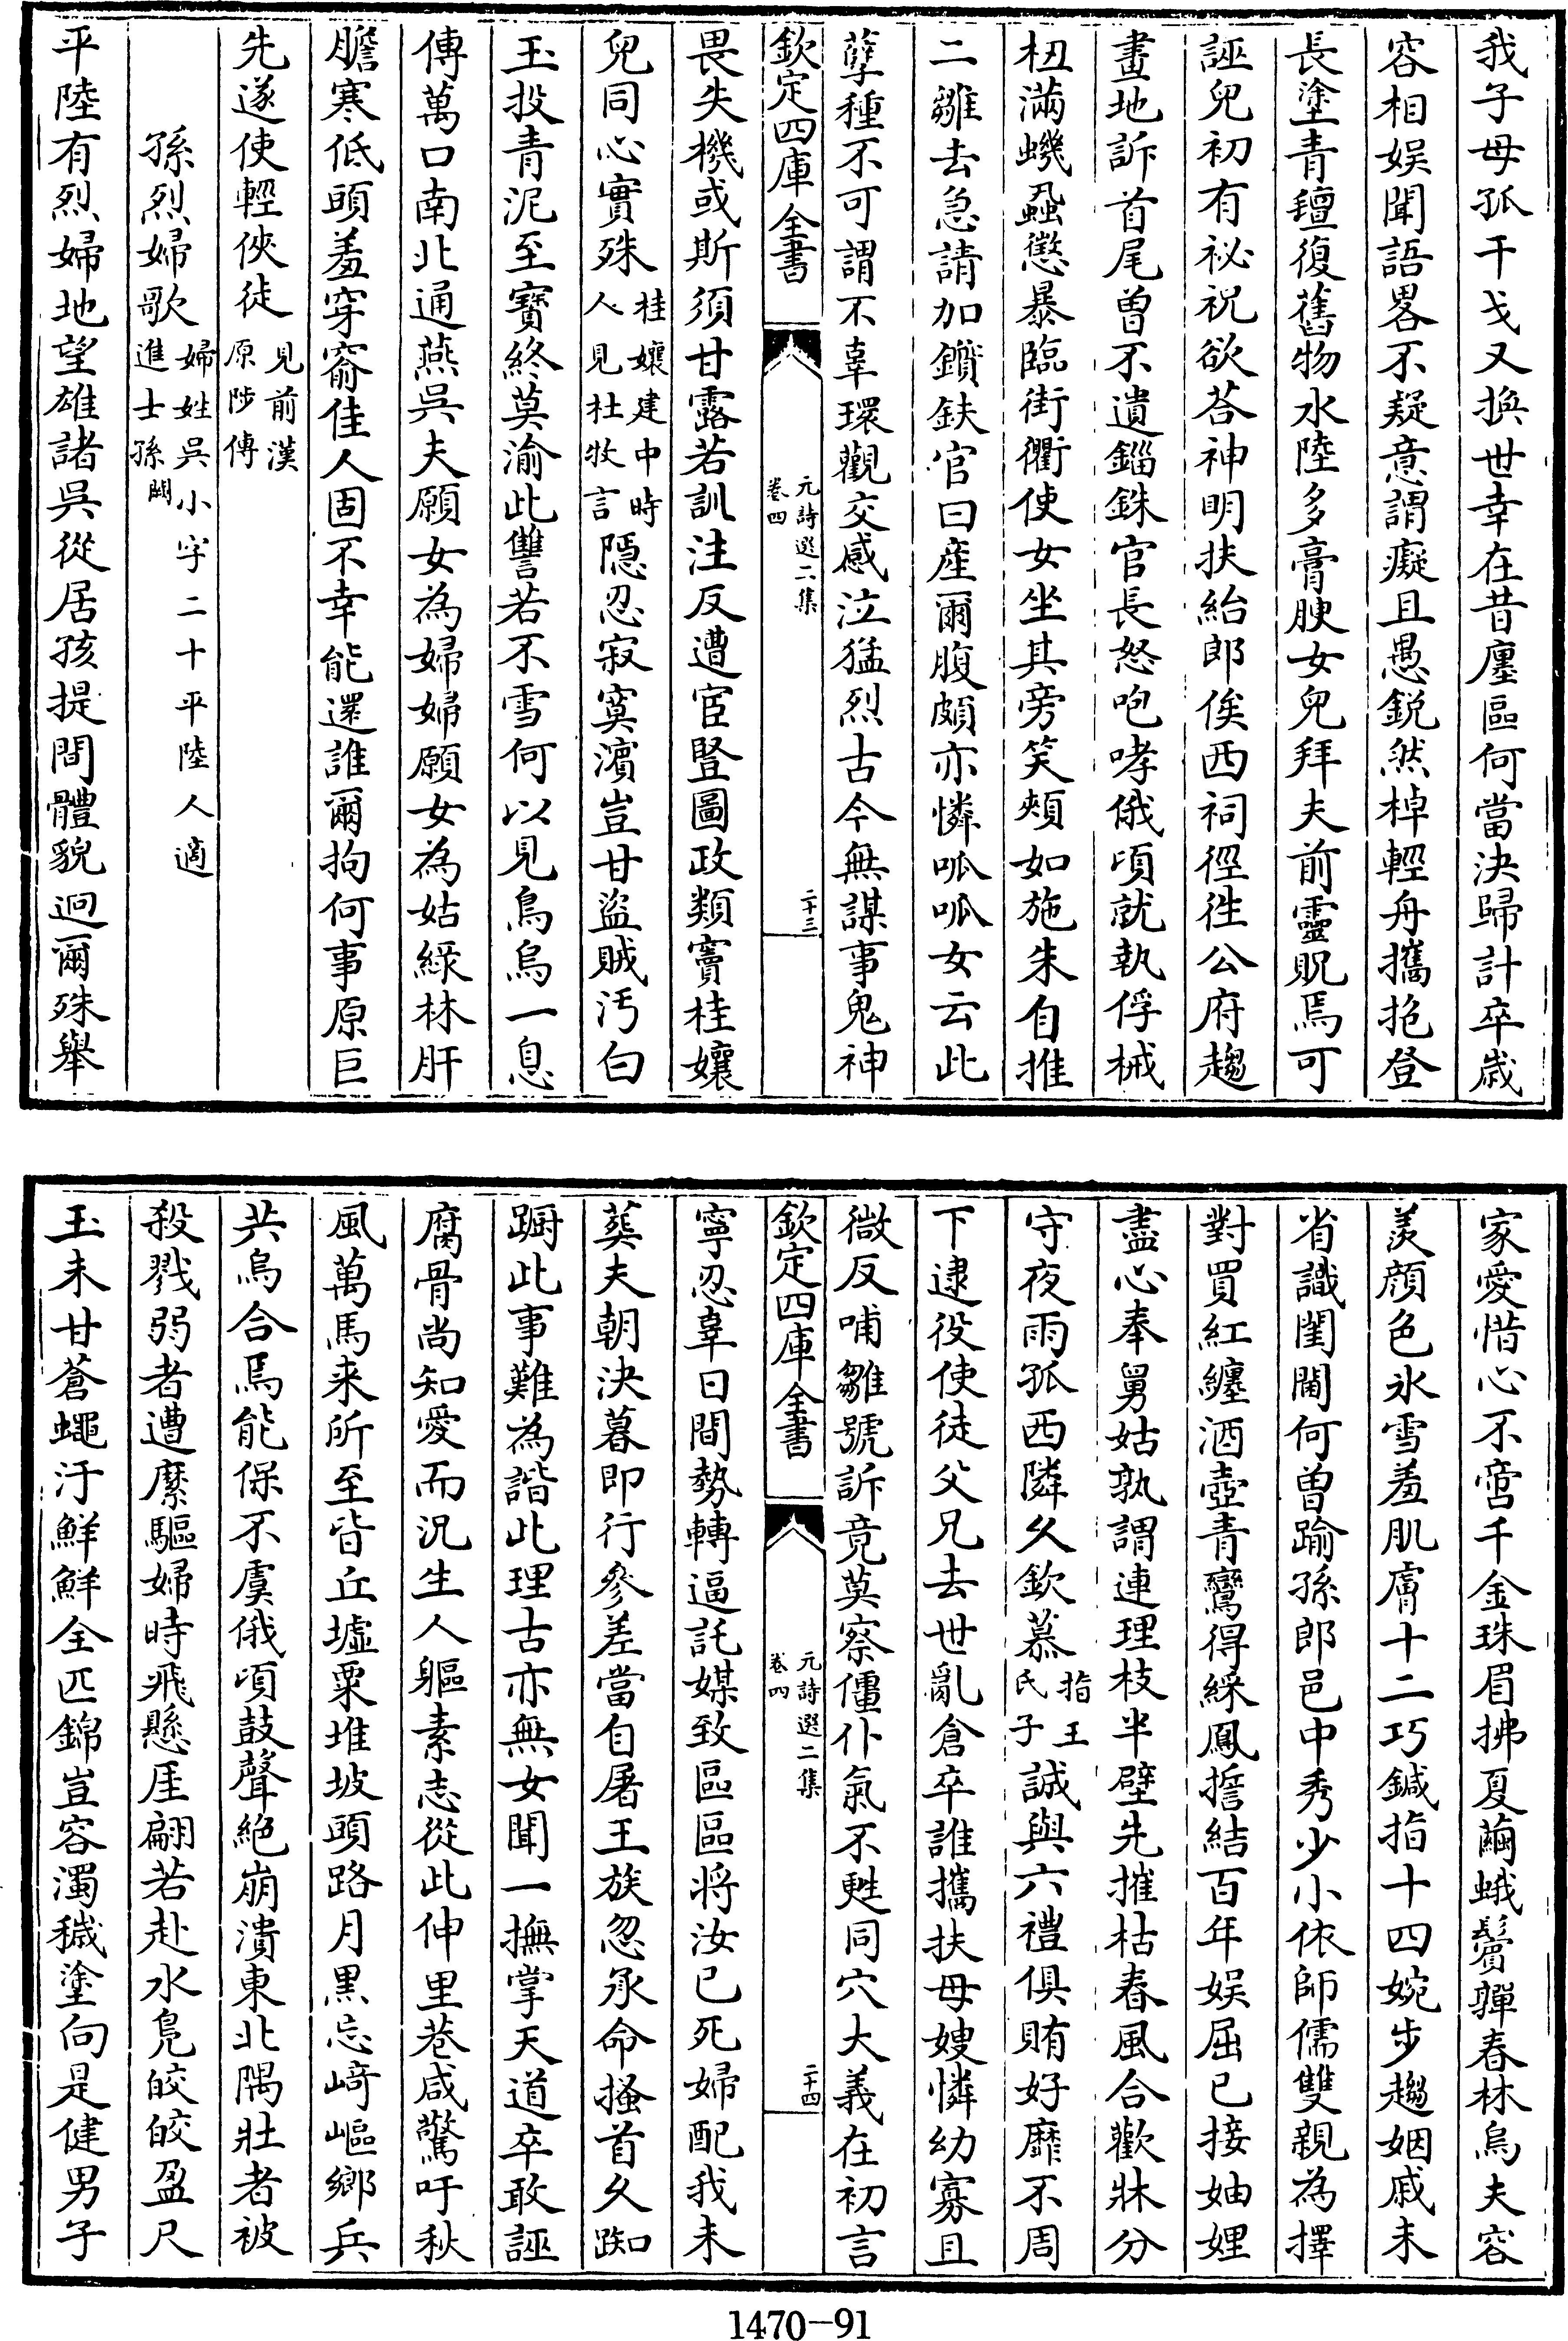 我子母孤干戈又換世幸在昔廛區何當決歸計卒歲
容相娱聞語畧不疑意謂癡且愚鋭然棹輕舟攜抱登
長塗青氊復舊物水陸多膏腴女兒拜夫前靈貺焉可
誣兒初有祕祝欲荅神明扶紿郎俟西祠徑徃公府趨
畫地訴首尾曽不遺錙銖官長怒咆哮俄頃就執俘械
杻滿蟣蝨懲暴臨街衢使女坐其旁笑頰如施朱自推
二雛去急請加鑕鈇官曰産爾腹頗亦憐呱呱女云此
孽種不可謂不辜環觀交感泣猛烈古今無謀事鬼神
欽定四庫全書
元詩選二集
卷四
二十三
畏失機或斯須甘露若訓注反遭宦豎圖政類竇桂孃
兒同心實殊桂孃建中時
人見杜牧言隠忍寂寞濵豈甘盜賊汚白
玉投青泥至寳終莫渝此讐若不雪何以見烏烏一息
傳萬口南北通燕吳夫願女為婦婦願女為姑緑林肝
膽寒低頭羞穿窬佳人固不幸能還誰爾拘何事原巨
先遂使輕俠徒見前漢
原陟傳
孫烈婦歌婦姓吳小字二十平陸人適
進士孫闕
平陸有烈婦地望雄諸吳從居孩提間體貌迥爾殊舉
家愛惜心不啻千金珠眉拂夏繭蛾鬢嚲春林烏夫容
羡顔色氷雪羞肌膚十二巧鍼指十四婉步趨姻戚未
省識閨閫何曽踰孫郎邑中秀少小依師儒雙親為擇
對買紅纏酒壺青鸞得綵鳳擔結百年娱屈已接妯娌
盡心奉舅姑孰謂連理枝半壁先摧枯春風合歡牀分
守夜雨孤西隣久欽慕指王
氏子誠與六禮俱賄好靡不周
下逮役使徒父兄去世亂倉卒誰攜扶母嫂憐幼寡且
微反哺雛號訴竟莫察僵仆氣不甦同穴大義在初言
欽定四庫全書
元詩選二集
卷四
二十四
寧忍辜日間勢轉逼託媒致區區将汝已死婦配我未
葬夫朝決暮即行參差當自屠王族忽承命搔首久踟
蹰此事難為諧此理古亦無女聞一撫掌天道卒敢誣
腐骨尚知愛而況生人軀素志從此伸里巷咸驚吁秋
風萬馬来所至皆丘墟粟堆坡頭路月黒忘﨑嶇鄉兵
共烏合焉能保不虞俄頃鼓聲絶崩潰東北隅壯者被
殺戮弱者遭縻驅婦時飛懸厓翩若赴水鳬皎皎盈尺
玉未甘蒼蠅汙鮮鮮全匹錦豈容濁穢塗向是健男子
1470-91